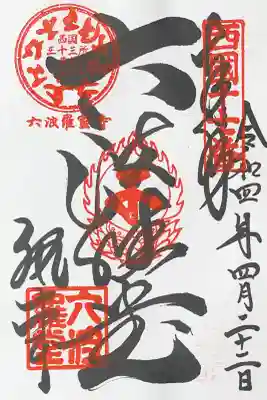 奉拝
西国十七番
令和四年四月二十二日
六波羅堂
西国
三十三所
六波羅蜜寺
六波
羅堂